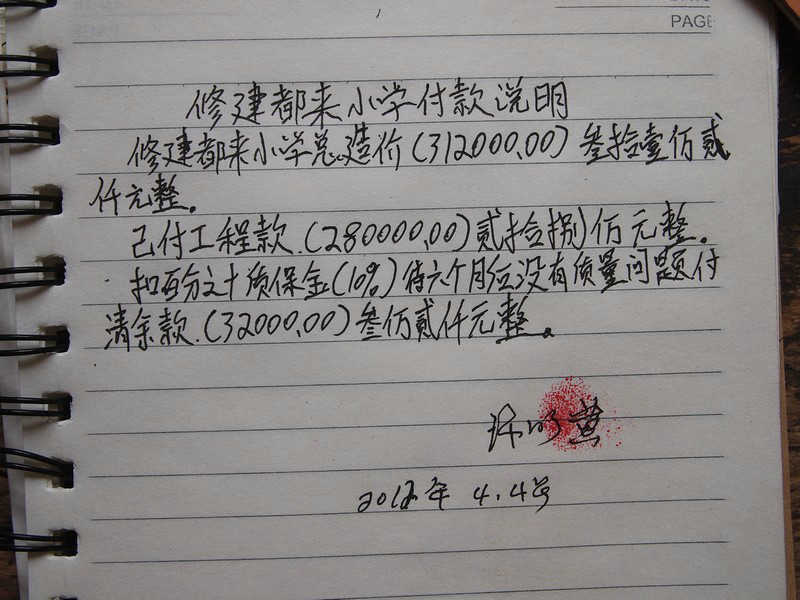 PAGE
修建都来小学付款说明
修建都来小学总造价(312000.00)叁拾壹佰贰
仟元整。
己付工程款.(280000.00)贰拾捌佰元整。
扣百分之十质保金(10%)待六个月后没有质量问题付
清余款.(32000.00)叁佰贰仟元整。
2012年 4.4号